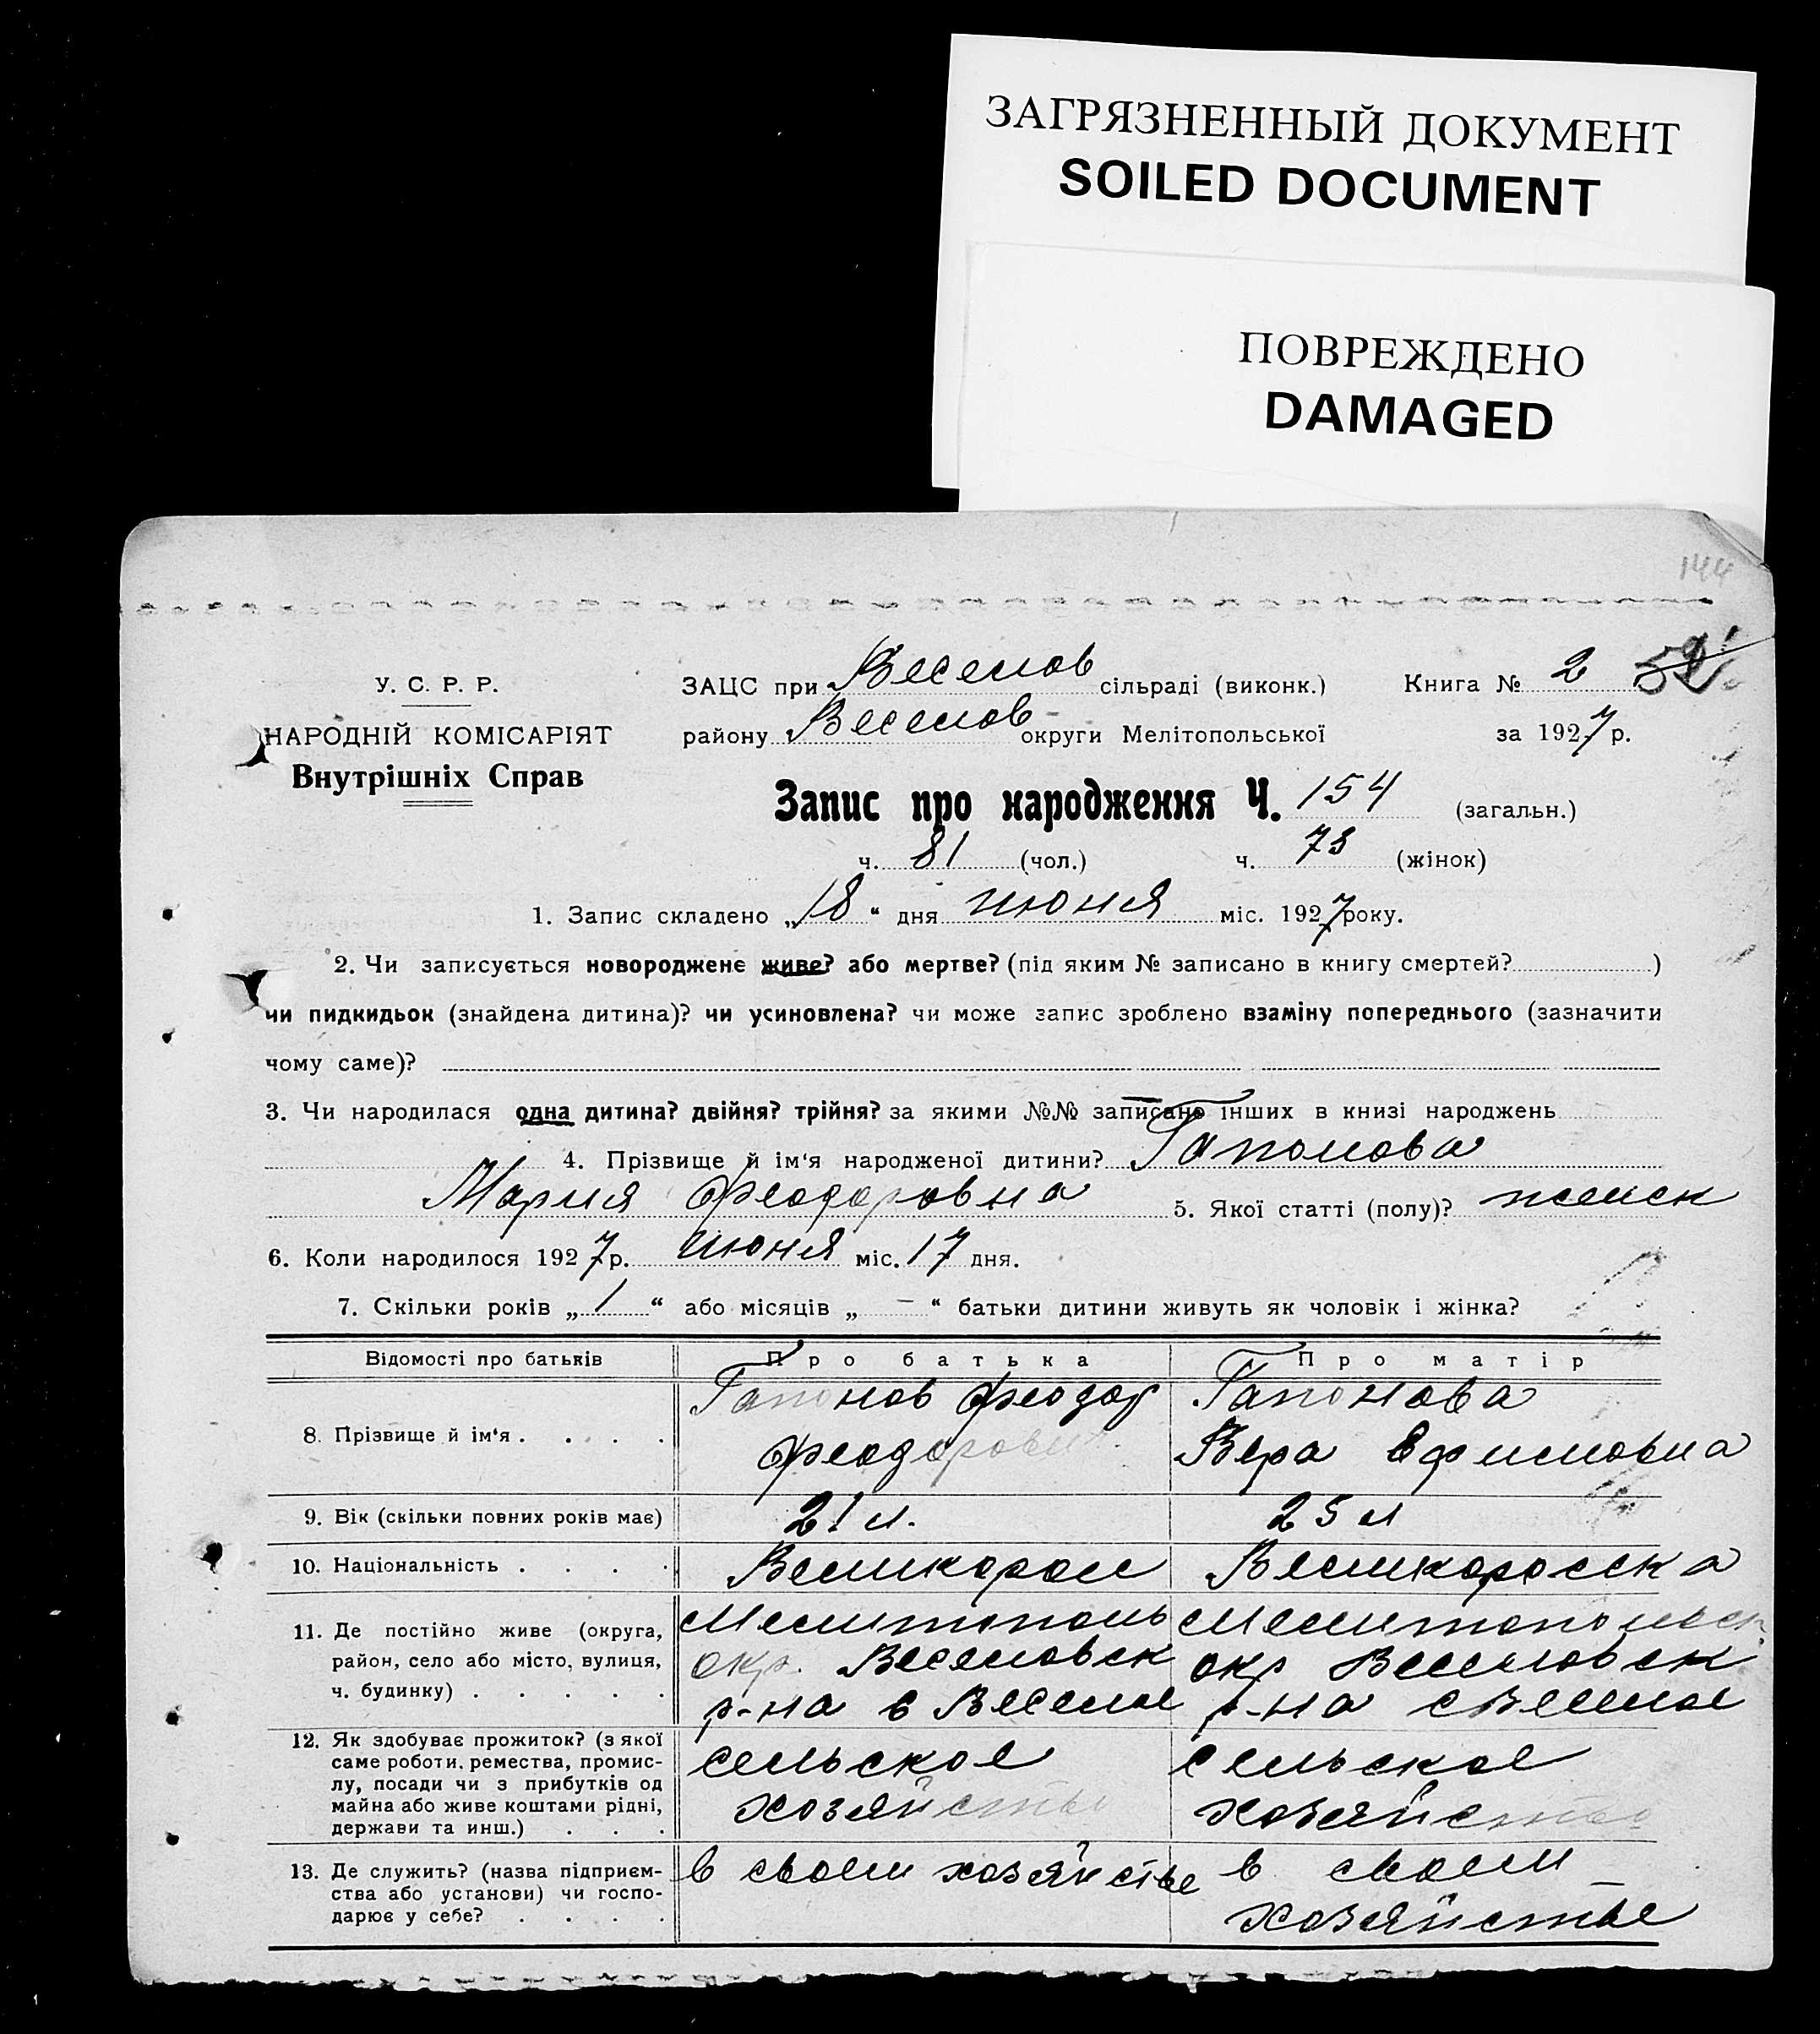 ЗАГРЯЗНЕННЫЙ ДОКУМЕНТ
SOILED DOCUMENT
ПОВРЕЖДЕНО
DAMAGED
144
У. С. Р. Р.
НАРОДНІЙ КОМІСАРІЯТ
Внутрішніх Справ
ЗАЦС при Веселов сільраді (виконк.) Книга № 2
району Веселов- округи Мелітопольської за 1927 р.
Запис про народження Ч. 154 (загальн.)
ч. 81 (чол.) ч. 73 (жінок)
1. Запис складено „18" дня июня міс. 1927 року.
2. Чи записується новороджене живе? або мертве? (під яким № записано в книгу смертей? )
чи пидкидьок (знайдена дитина)? чи усиновлена? чи може запис зроблено взаміну попереднього (зазначити
чому саме)?
3. Чи народилася одна дитина? двійня? трійня? за якими №№ записано інших в книзі народжень
4. Прізвище й ім'я народженої дитини? Гапонова
Мария Феодоровна 5. Якої статті (полу)? женск
6. Коли народилося 1927 р. июня міс. 17 дня.
7. Скільки років „1" або місяців „-" батьки дитини живуть як чоловік і жінка?
Відомості про батьків Про батька Про матір
8. Прізвище й ім'я . . . .
Гапонов Феодор
Феодорович
Гапонова
Вера Ефимовна
9. Вік (скільки повних років має) 21 л. 25 л
10. Національність . . . . Великорос Великоросска
11. Де постійно живе (округа,
район, село або місто, вулиця,
ч. будинку) . . . . .
Мелитополь
окр. Веселовск
р-на с Веселое
Мелитопольск
окр Веселовск
р-на с Веселое
12. Як здобуває прожиток? (з якої
саме роботи, ремества, промис-
лу, посади чи з прибутків од
майна або живе коштами рідні,
держави та инш.) . . .
сельское
хозяйство
сельское
хозяйство
13. Де служить? (назва підприєм-
ства або установи) чи госпо-
дарює у себе? . . . .
в своем хозяйстве
в своем
хозяйстве